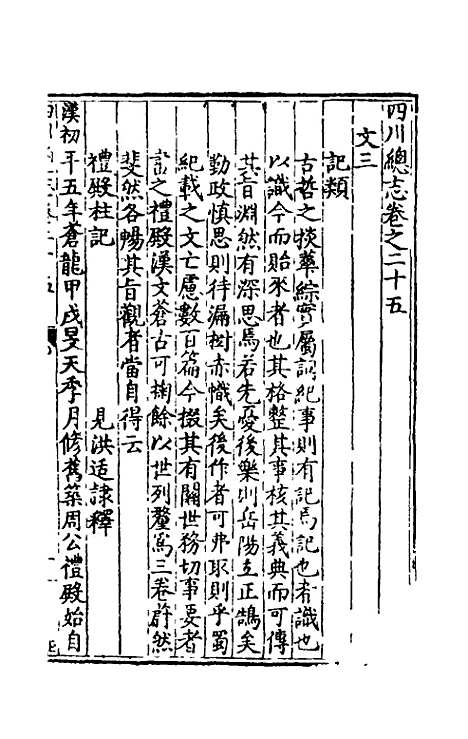 四川總志卷之二十五
文三
記類
古哲之掞華綜實屬詞紀事則有記焉記也者識也
以識今而貽來者也其格整其事核其義典而可傳
其旨淵然有深思焉若先憂後樂則岳陽立正鵠矣
勤政慎思則待漏樹赤幟矣後作者可弗取則乎蜀
紀載之文亡慮數百篇今掇其有關世務切事要者
誌之禮殿漢文蒼古可掬餘以世列釐為三卷蔚然
斐然各暢其旨觀者當自得云
禮殿柱記 見洪适隷釋
漢初平五年蒼龍甲戌旻天季月修舊築周公禮殿始自